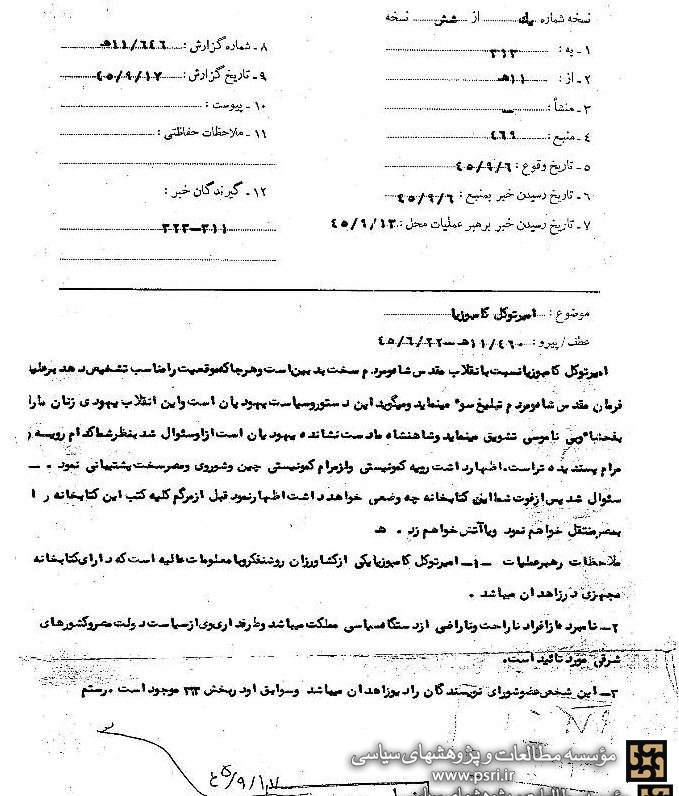 نسخه شماره یک از شش نسخه
۱ - به : ۳۱۲
۲ - از : ۱۱ ه‍
۳ - منشأ : -
۴ - منبع : ۴۶۹
۵ - تاریخ وقوع : ۴۵/۹/۶
۶ - تاریخ رسیدن خبر بمنبع : ۴۵/۹/۶
۷ - تاریخ رسیدن خبر برهبر عملیات محل : ۴۵/۹/۱۳
۸ - شماره گزارش : ۱۱/۶۴۶ ه‍
۹ - تاریخ گزارش : ۴۵/۹/۱۷
۱۰ - پیوست :
۱۱ - ملاحظات حفاظتی :
۱۲ - گیرندگان خبر :
۳۲۲-۳۱۱
موضوع : امیرتوکل کامبوزیا
عطف / پیرو : ۱۱/۴۶۰ ه‍ - ۴۵/۶/۲۲
امیرتوکل کامبوزیا نسبت بانقلاب مقدس شاه و مردم سخت بدبین است و هرجا که موقعیت را مناسب تشخیص دهد برعلیه
فرمان مقدس شاه و مردم تبلیغ سوء مینماید و میگوید این دستور و سیاست یهودیان است و این انقلاب یهودی زنان ما را
بفحشاء و بی ناموسی تشویق مینماید و شاهنشاه ما دست نشانده یهودیان است از او سئوال شد بنظر شما کدام رویه و
مرام پسندیده تر است. اظهار داشت رویه کمونیستی و از مرام کمونیستی چین و شوروی و مصر سخت پشتیبانی نمود . -
سئوال شد پس از فوت شما این کتابخانه چه وضعی خواهد داشت اظهار نمود قبل از مرگم کلیه کتب این کتابخانه را
بمصر منتقل خواهم نمود ویا آتش خواهم زد . ه‍
ملاحظات رهبر عملیات - ۱- امیرتوکل کامبوزیا یکی از کشاورزان روشنفکر و با معلومات عالیه است که دارای کتابخانه
مجهزی در زاهدان میباشد .
۲- نامبرده از افراد ناراحت و ناراضی از دستگاه سیاسی مملکت میباشد و طرفداری وی از سیاست دولت مصر و کشورهای
شرقی مورد تائید است.
۳- این شخص عضو شورای نویسندگان رادیو زاهدان میباشد و سوابق او در بخش ۳۱۲ موجود است . رستم
۴۵/۹/۱۷
مؤسسه مطالعات و پژوهشهای سیاسی
www.psri.ir